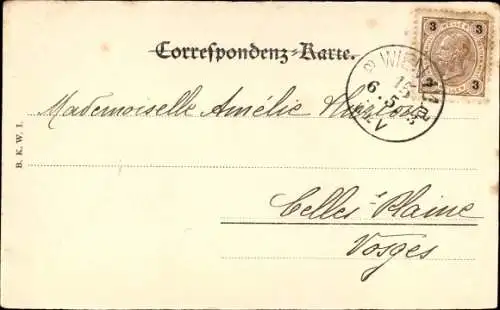 Correspondenz-Karte.
3 3
3 3
WIEN
15
6.5.
Mademoiselle Amélie
Celles s/ Plaine
Vosges
B. K. W. I.